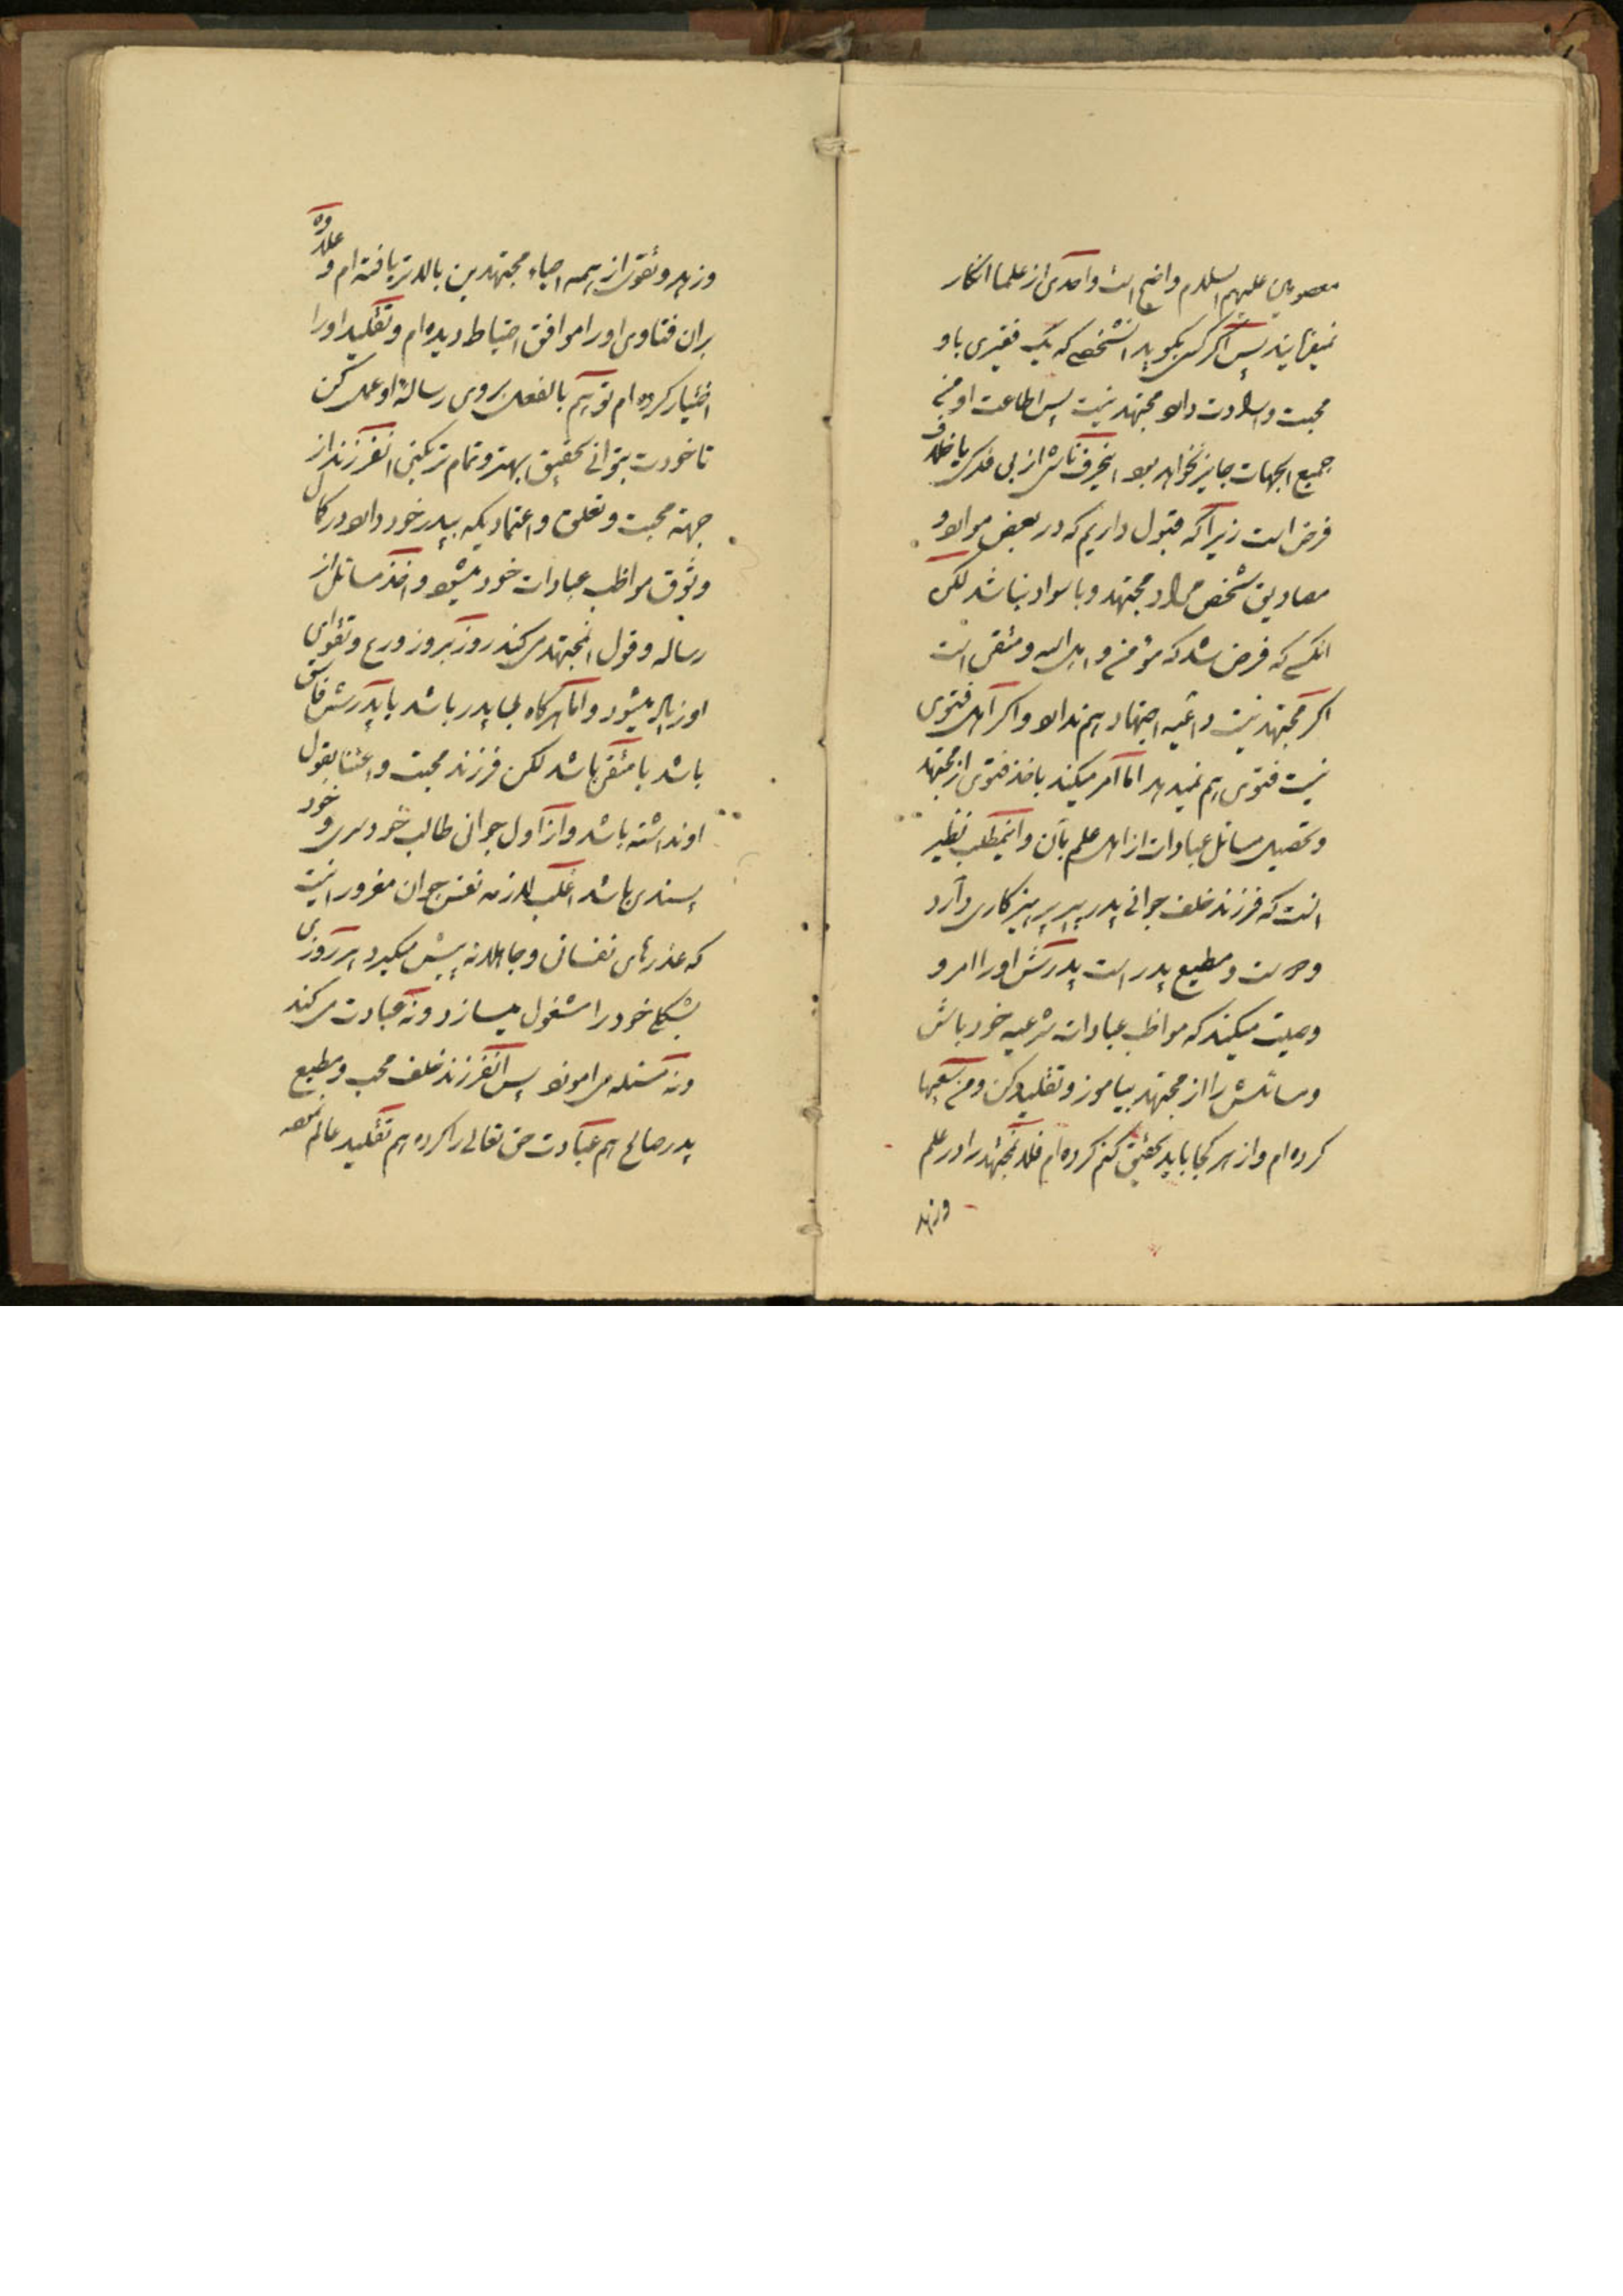 معصومین علیهم السلام واضح است واحدی از علما انکار
نمیفرمایند پس اکر کسی بکوید انشخصی که یک فقیری باو
محبت و ارادت دارد مجتهد نیست پس اطاعت او من
جمیع الجهات جایز نخواهد بود اینحرف ناشی از بی فکری یا خلاف
فرض است زیرا که قبول داریم که در بعض موارد و
مصادیق شخص مراد مجتهد و با سواد نباشد لکن
انکسی که فرض شد که مؤمن و اهل الله و متقی است
اکر مجتهد نیست داعیه اجتهاد هم ندارد و اکر اهل فتوی
نیست فتوی هم نمیدهد اما امر میکند باخذ فتوی از مجتهد
و تحصیل مسائل عبادات از اهل علم بآن و اینمطلب نظیر
انست که فرزند خلف جوانی پدر پیر پرهیزکاری دارد
و مطیع پدر است پدرش او را امر و
وصیت میکند که مواظب عبادات شرعیه خود باش
و مسائلش را از مجتهد بیاموز و تقلید کن و من سعیها
کرده ام و از هر کجا باید تحقیق کنم کرده ام فلان مجتهد را در علم
و زهد
و زهد و تقوی از همه احیاء مجتهدین بالاتر یافته ام و علاوه
بران فتاوی او را موافق احتیاط دیده ام و تقلید او را
اختیار کرده ام تو هم بالفعل بروی رسالهٔ او عمل کن
تا خودت بتوانی تحقیق بهتر و تمام تر بکنی انفرزند از
جهة محبت و تعلق و اعتمادیکه بپدر خود دارد در کمال
وثوق مواظب عبادات خود میشود و اخذ مسائل از
رساله و قول انمجتهد می کند روز بروز ورع و تقوای
او زیاد میشود و اما هرکاه بی پدر باشد یا پدرش فاسق
باشد یا متقی باشد لکن فرزند محبت و اعتنا بقول
او نداشته باشد و از اول جوانی طالب خودسری و خود
پسندی باشد اغلب لازمه نفس جوان مغرور اینست
که عذرهای نفسانی و جاهلانه پیش میکیرد هر روزی
بشکلی خود را مشغول میسازد و نه عبادت می کند
و نه مسئله می اموزد پس انفرزند خلف محب و مطیع
پدر صالح هم عبادت حق تعالی را کرده هم تقلید عالم